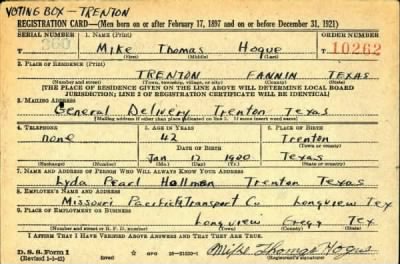 VOTING BOX – TRENTON
REGISTRATION CARD—(Men born on or after February 17, 1897 and on or before December 31, 1921)
SERIAL NUMBER 1. NAME (Print) ORDER NUMBER
360 Mike Thomas Hogue 10262
(First) (Middle) (Last)
2. PLACE OF RESIDENCE (Print)
TRENTON FANNIN TEXAS
(Number and street) (Town, township, village, or city) (County) (State)
[THE PLACE OF RESIDENCE GIVEN ON THE LINE ABOVE WILL DETERMINE LOCAL BOARD
JURISDICTION; LINE 2 OF REGISTRATION CERTIFICATE WILL BE IDENTICAL]
3. MAILING ADDRESS
General Delivery Trenton Texas
[Mailing address if other than place indicated on line 2. If same insert word same]
4. TELEPHONE 5. AGE IN YEARS 6. PLACE OF BIRTH
none 42 Trenton
DATE OF BIRTH (Town or county)
Jan 17 1900 Texas
(Exchange) (Number) (Mo.) (Day) (Yr.) (State or country)
7. NAME AND ADDRESS OF PERSON WHO WILL ALWAYS KNOW YOUR ADDRESS
Lyda Pearl Hallman Trenton Texas
8. EMPLOYER'S NAME AND ADDRESS
Missouri Pacific Transport Co Longview Tex
9. PLACE OF EMPLOYMENT OR BUSINESS
Longview Gregg Tex
(Number and street or R. F. D. number) (Town) (County) (State)
I AFFIRM THAT I HAVE VERIFIED ABOVE ANSWERS AND THAT THEY ARE TRUE.
D. S. S. Form 1 GPO Mike Thomas Hogue
(Revised 1-1-42) (over) (Registrant's signature)